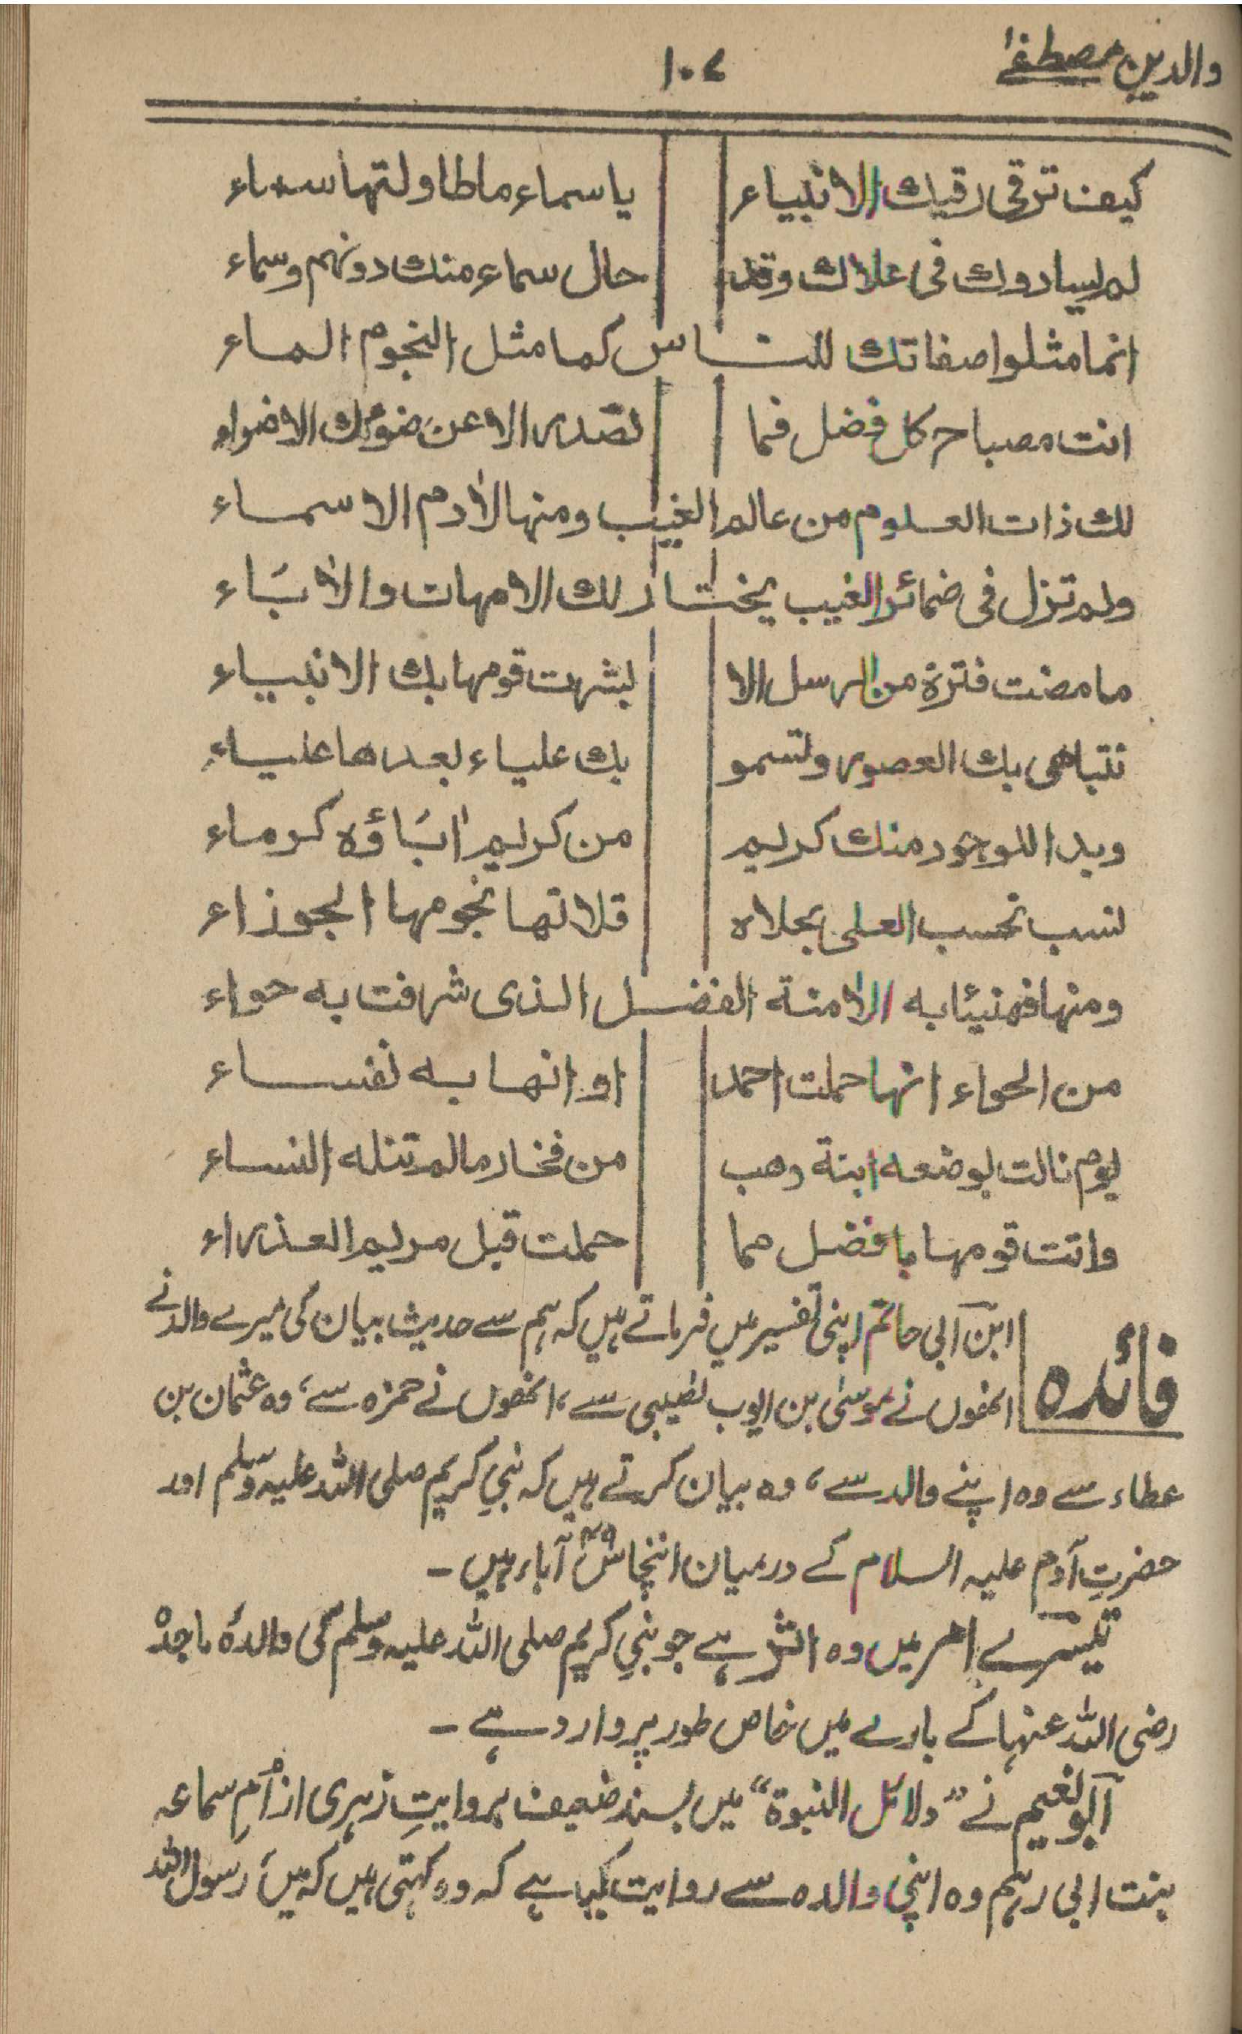 والدین مصطفےٰ ۱۰۷
کیف ترقی رقیك الانبیاء یا سماء ما طاولتها سماء
لم یساووك فی علاك وقد حال سماء منك دونهم وسماء
انما مثلوا صفاتك للناس کما مثل النجوم الماء
انت مصباح کل فضل فما تصدر الا عن ضوئك الاضواء
لك ذات العلوم من عالم الغیب ومنها لاٰدم الاسماء
ولم تزل فی ضمائر الغیب یختار لك الامهات والاٰباء
ما مضت فترة من الرسل الا بشرت قومها بك الانبیاء
تتباهی بك العصور وتسمو بك علیاء بعدها علیاء
وبدا للوجود منك کریم من کریم اٰباؤه کرماء
نسب تحسب العلی بحلاه قلاتها نجومها الجوزاء
ومنها فهنیئا به الاٰمنة الفضل الذی شرفت به حواء
من الحواء انها حملت احمد او انها به نفساء
یوم نالت بوضعه ابنة وهب من فخار مالم تنله النساء
واتت قومها بافضل مما حملت قبل مریم العذراء
فائدہ ابن ابی حاتم اپنی تفسیر میں فرماتے ہیں کہ ہم سے حدیث بیان کی میرے والد نے
انھوں نے موسیٰ بن ایوب نصیبی سے، انھوں نے حمزہ سے، وہ عثمان بن
عطاء سے وہ اپنے والد سے، وہ بیان کرتے ہیں کہ نبیِ کریم صلی اللہ علیہ وسلم اور
حضرتِ آدم علیہ السلام کے درمیان انچاس ۴۹ آباء ہیں ۔
تیسرے امر میں وہ اثر ہے جو نبیِ کریم صلی اللہ علیہ وسلم کی والدۂ ماجدہ
رضی اللہ عنہا کے بارے میں خاص طور پر وارد ہے ۔
ابو نعیم نے "دلائل النبوۃ" میں بسند ضعیف بروایتِ زہری از اُمِ سماعہ
بنت ابی رہم وہ اپنی والدہ سے روایت کیا ہے کہ وہ کہتی ہیں کہ میں رسول اللہ